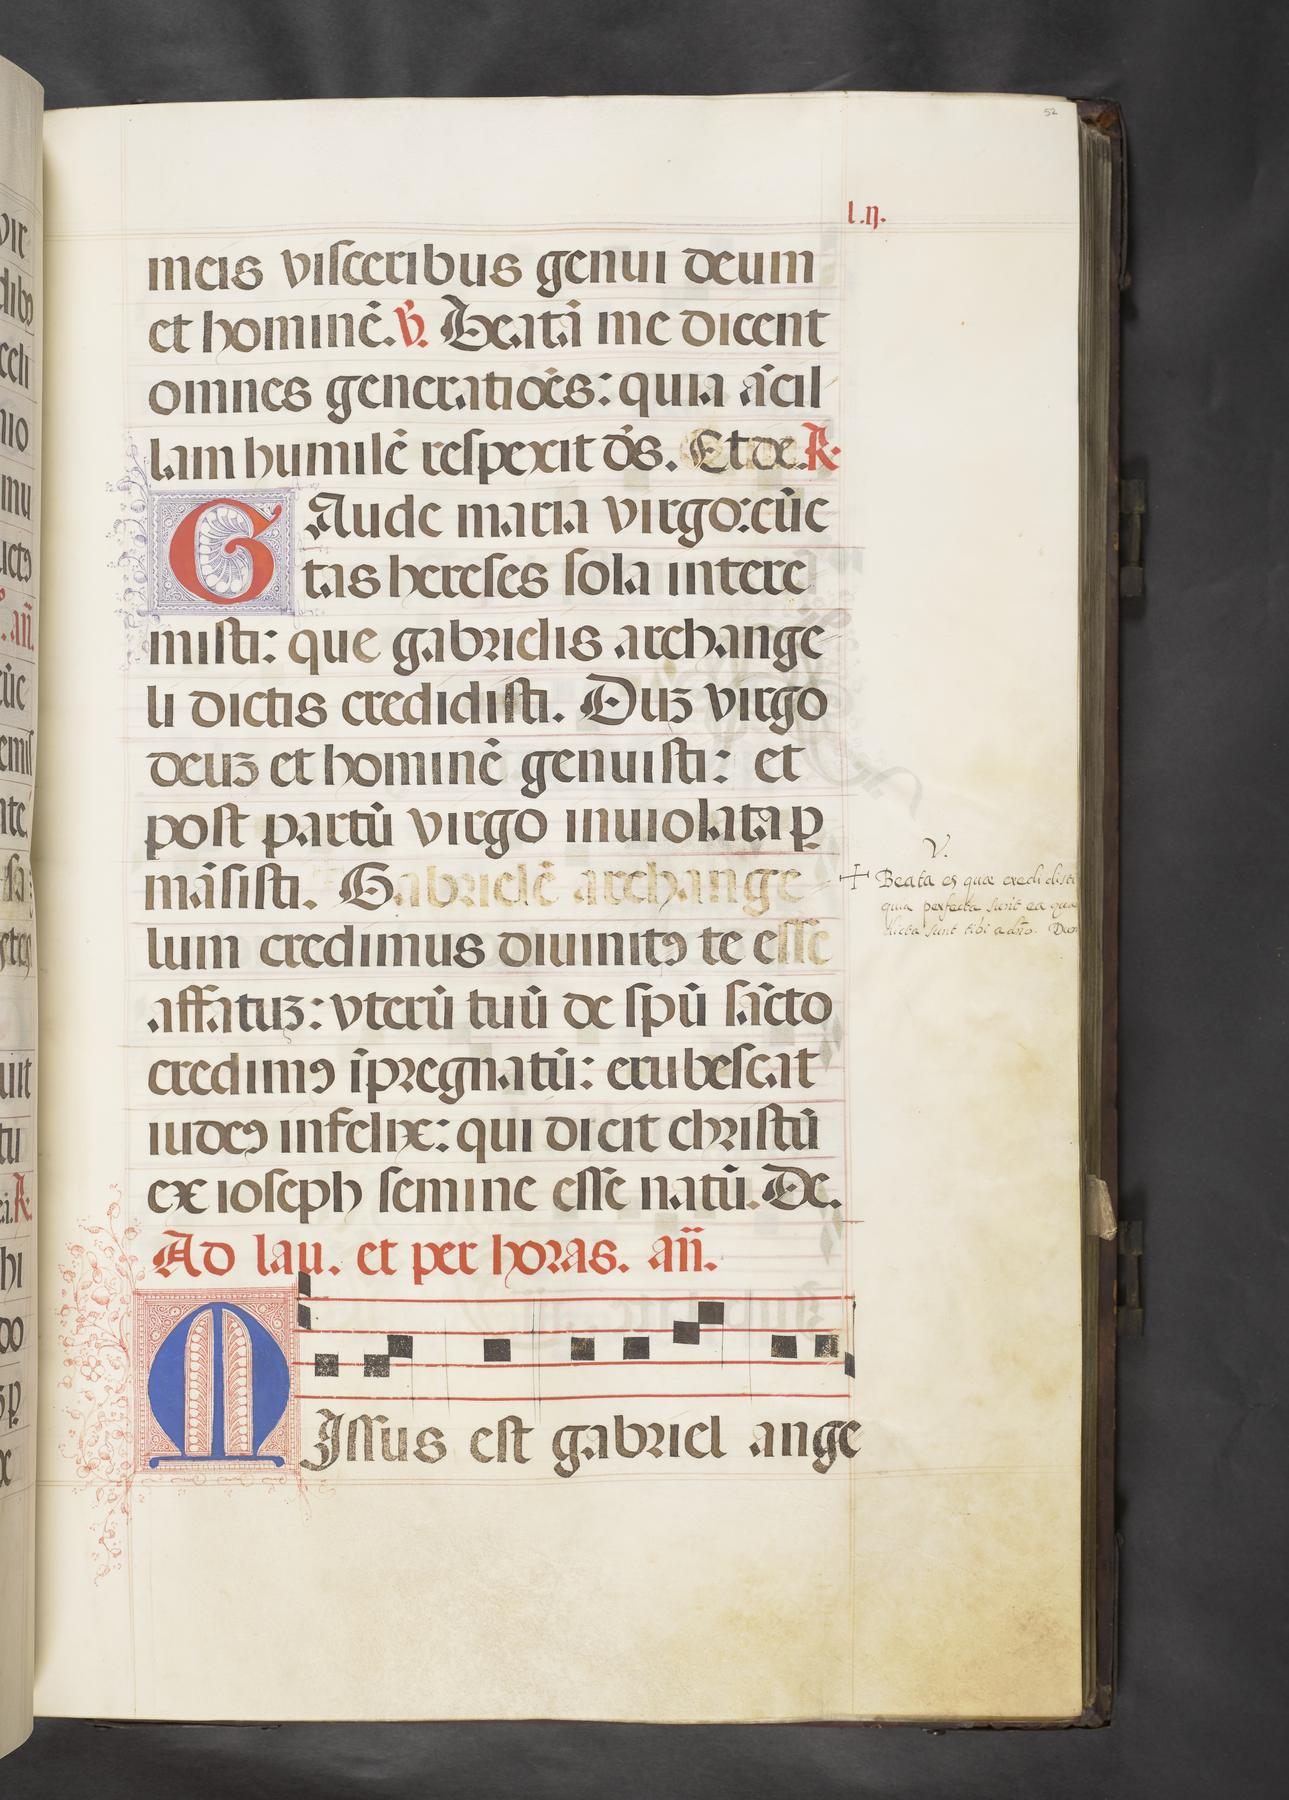 52
l.ij.
meis visceribus genui deum
et hominē. ℣. Beatā me dicent
omnes generatiōes: quia ācil
lam humilē respexit de͛s. Et de. ℟.
GAude maria virgo: cūc
tas hereses sola intere
misti: que gabrielis archange
li dictis credidisti. Duꝫ virgo
deuꝫ et hominē genuisti: et
post partū virgo inuiolata ꝑ
māsisti. Gabrielē archange
lum credimus diuinitꝯ te esse
affatuꝫ: vterū tuū de spū sācto
credimꝯ īpregnatū: erubescat
iudeꝯ infelix: qui dicit christū
ex ioseph semine esse natū. De.
Ad lau. et per horas. añ.
MIssus est gabriel ange
V.
+ Beata es quæ credidisti
quia perfecta sunt ea quæ
dicta sunt tibi a dn̄o.